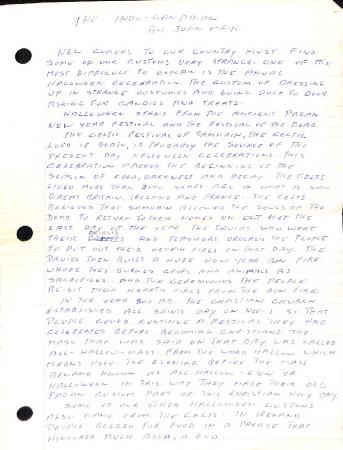 THE INDO-CANADIAN
BY JOAN MAYO
NEW COMERS TO OUR COUNTRY MUST FIND
SOME OF OUR CUSTOMS VERY STRANGE. ONE OF THE
MOST DIFFICULT TO EXPLAIN IS THE ANNUAL
HALLOWEEN CELEBRATION. THE CUSTOM OF DRESSING
UP IN STRANGE COSTUMES AND GOING DOOR TO DOOR
ASKING FOR CANDIES AND TREATS.
HALLOWEEN STEMS FROM THE ANCIENT PAGAN
NEW YEAR FESTIVAL AND THE FESTIVAL OF THE DEAD.
THE CELTIC FESTIVAL OF SAMHAIN, THE CELTIC
LORD OF DEATH, IS PROBABLY THE SOURCE OF THE
PRESENT DAY HALLOWEEN CELEBRATIONS. THIS
CELEBRATION MARKED THE BEGINNING OF THE
SEASON OF COLD, DARKNESS AND DECAY. THE CELTS
LIVED MORE THAN 2000 YEARS AGO IN WHAT IS NOW
GREAT BRITAIN, IRELAND AND FRANCE. THE CELTS
BELIEVED THAT SAMHAIN ALLOWED THE SOULS OF THE
DEAD TO RETURN TO THEIR HOMES ON OCT 31ST THE
LAST DAY OF THE YEAR. THE DRUIDS WHO WERE
THEIR PRIESTS AND TEACHERS ORDERED THE PEOPLE
TO PUT OUT THEIR HEARTH FIRES ON THAT DAY. THE
DRUIDS THEN BUILT A HUGE NEW YEAR BON FIRE
WHERE THEY BURNED CROPS AND ANIMALS AS
SACRIFICES. AND THE CEREMONIES THE PEOPLE
RE-LIT THEIR HEARTH FIRES FROM THE BON FIRE.
IN THE YEAR 800 AD. THE CHRISTIAN CHURCH
ESTABLISHED ALL SAINTS DAY ON NOV 1 SO THAT
PEOPLE COULD CONTINUE A FESTIVAL THEY HAD
CELEBRATED BEFORE BECOMING CHRISTIANS. THE
MASS THAT WAS SAID ON THAT DAY WAS CALLED
ALL-HALLOW-MASS. FROM THE WORD HALLOW WHICH
MEANS HOLY. THE EVENING BEFORE THE MASS
BECAME KNOWN AS ALL HALLOW-E'EN OR
HALLOWEEN. IN THIS WAY THEY MADE THEIR OLD
PAGAN CUSTOM PART OF THIS CHRISTIAN HOLY DAY.
SOME OF OUR OTHER HALLOWEEN CUSTOMS
ALSO CAME FROM THE CELTS. IN IRELAND
PEOPLE BEGGED FOR FOOD IN A PARADE THAT
HONOURED MUCH OLLA, A GOD.